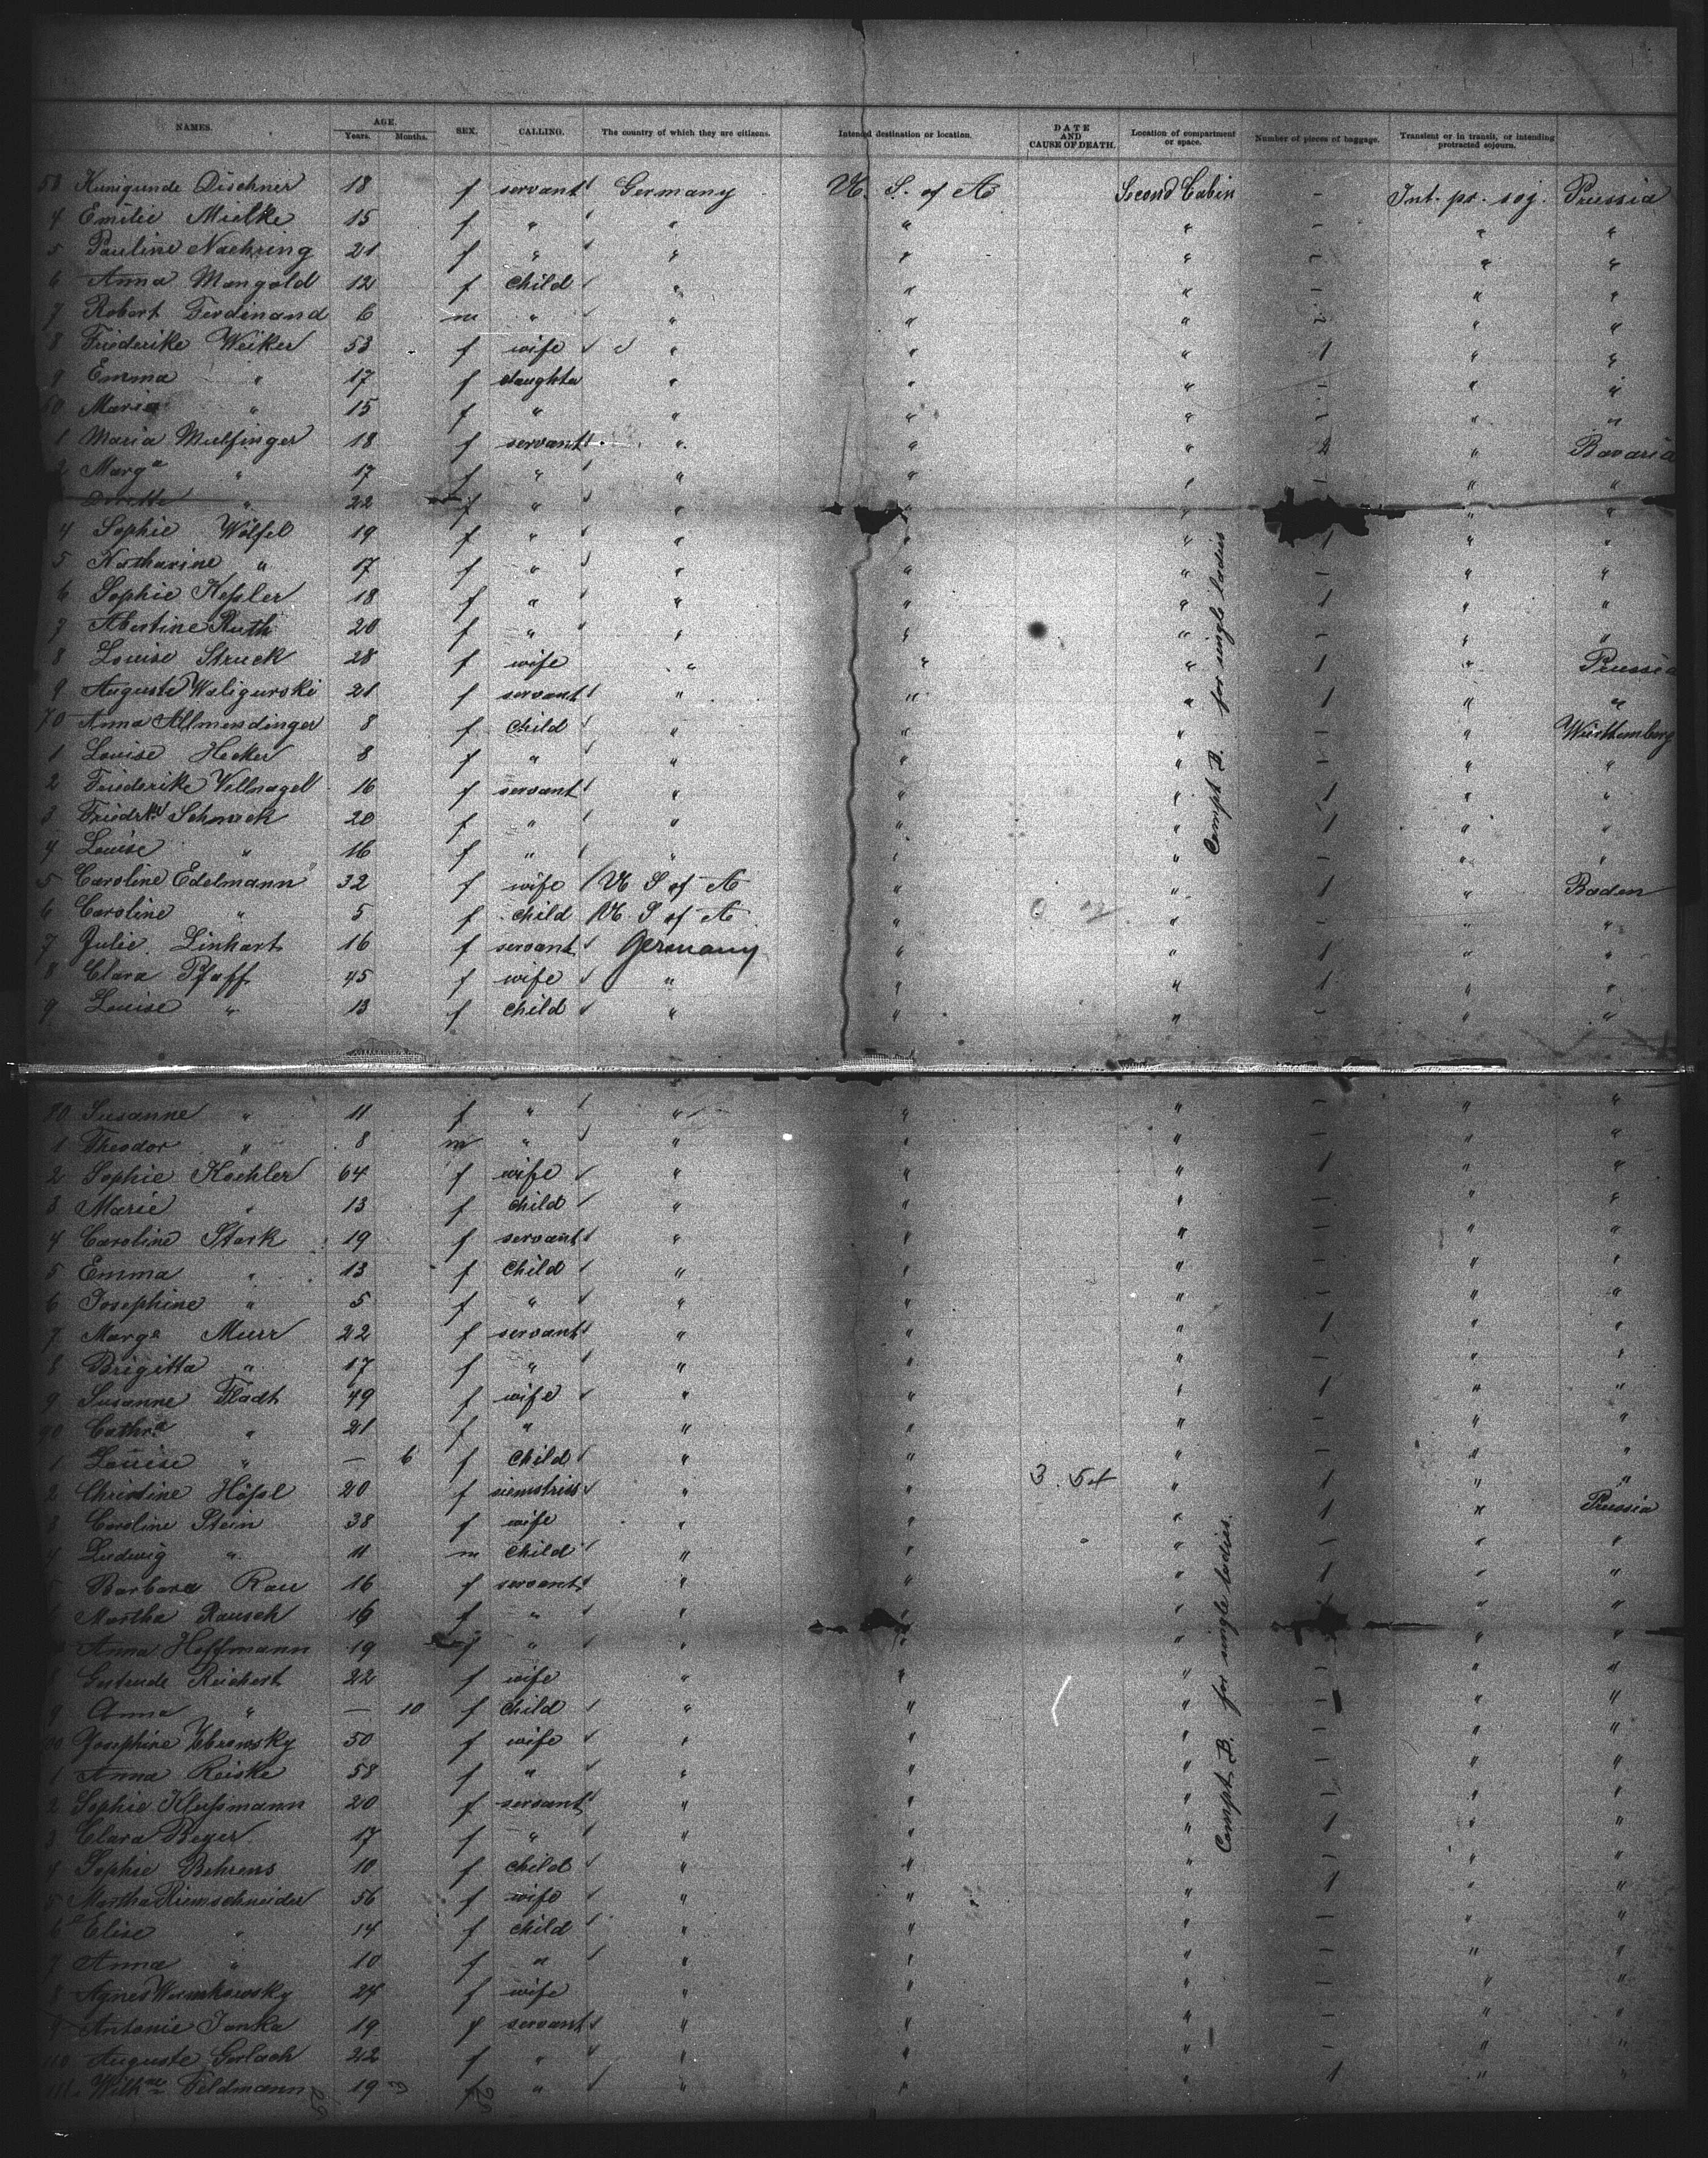 NAMES. AGE. Years. Months. SEX. CALLING. The country of which they are citizens. Intended destination or location. DATE AND CAUSE OF DEATH. Location of compartment or space. Number of pieces of baggage. Transient or in transit, or intending protracted sojourn.
53 Kunigunde Dischner 18 f servant Germany U. S. of A Second Cabin – Int. pr. soj. Prussia
4 Emilie Mielke 15 f " " " " – " "
5 Pauline Naehring 21 f " " " " – " "
6 Anna Mangold 12 f child " " " – " "
7 Robert Ferdinand 6 m " " " " – " "
8 Friederike Weiker 53 f wife " " " 1 " "
9 Emma " 17 f daughter " " " – " "
60 Maria " 15 f " " " " – " "
1 Maria Mulfinger 18 f servant " " " 2 " Bavaria
2 Marga " 17 f " " " " – " "
Dorette " 22 f " " " " " "
4 Sophie Wölfel 19 f " " " " 1 " "
5 Katharine " 17 f " " " " – " "
6 Sophie Keßler 18 f " " " " 1 " "
7 Abertine Ruth 20 f " " " " – " "
8 Louise Struck 28 f wife " " " 1 " Prussia
9 Auguste Waligurski 21 f servant " " " 1 " "
70 Anna Allmendinger 8 f child " " " – " Württemberg
1 Louise Hecker 8 f " " " " – " "
2 Friederike Vellnagel 16 f servant " " " 1 " "
3 Schmeck 20 f " " " " 1 " "
4 Louise " 16 f " " " " – " "
5 Caroline Edelmann 32 f wife U S of A " " 1 " Baden
6 Caroline " 5 f child U. S of A " " – " "
7 Julie Linhart 16 f servant Germany " " 1 " "
8 Clara Pfaff 45 f wife " " " 1 " "
9 Louise " 13 f child " " " – " "
Compt. B. for single ladies
80 Susanne " 11 f " " " " – " "
1 Theodor " 8 m " " " " – " "
2 Sophie Koehler 64 f wife " " " 1 " "
3 Marie " 13 f child " " " – " "
4 Caroline Stark 19 f servant " " " – " "
5 Emma " 13 f child " " " – " "
6 Josephine " 5 f " " " " – " "
7 Marga Murr 22 f servant " " " 1 " "
8 Brigitta " 17 f " " " " – " "
9 Susanne Fladt 49 f wife " " " 1 " "
90 Cathra " 21 f " " " " – " "
1 Louise " – 6 f child " " " – " "
2 Christine Hößl 20 f " " " 1 " "
3 Caroline Stein 38 f wife " " " 1 " Prussia
4 Ludwig " 11 m child " " " – " "
5 Barbara Rau 16 f servant " " " 1 " "
Martha Rausch 16 f " " " " " "
Anna Hoffmann 19 f " " " " " "
8 Gertrude Reichert 22 f wife " " " – " "
9 Anna " – 10 f child " " " – " "
00 Josephine 50 f wife " " " – " "
1 Anna Reiske 58 f " " " " – " "
2 Sophie Klußmann 20 f servant " " " – " "
3 Clara Beyer 17 f " " " " 1 " "
4 Sophie Behrens 10 f child " " " – " "
5 Martha Riemschneider 56 f wife " " " 1 " "
6 Elise " 14 f child " " " – " "
7 Anna " 10 f " " " " – " "
8 Agnes 24 f wife " " " – " "
9 Antonie Janka 19 f servant " " " – " "
110 Auguste Gerlach 22 f " " " " – " "
111 Wilhne Feldmann 19 f " " " " 1 " "
Compt. B. for single ladies.